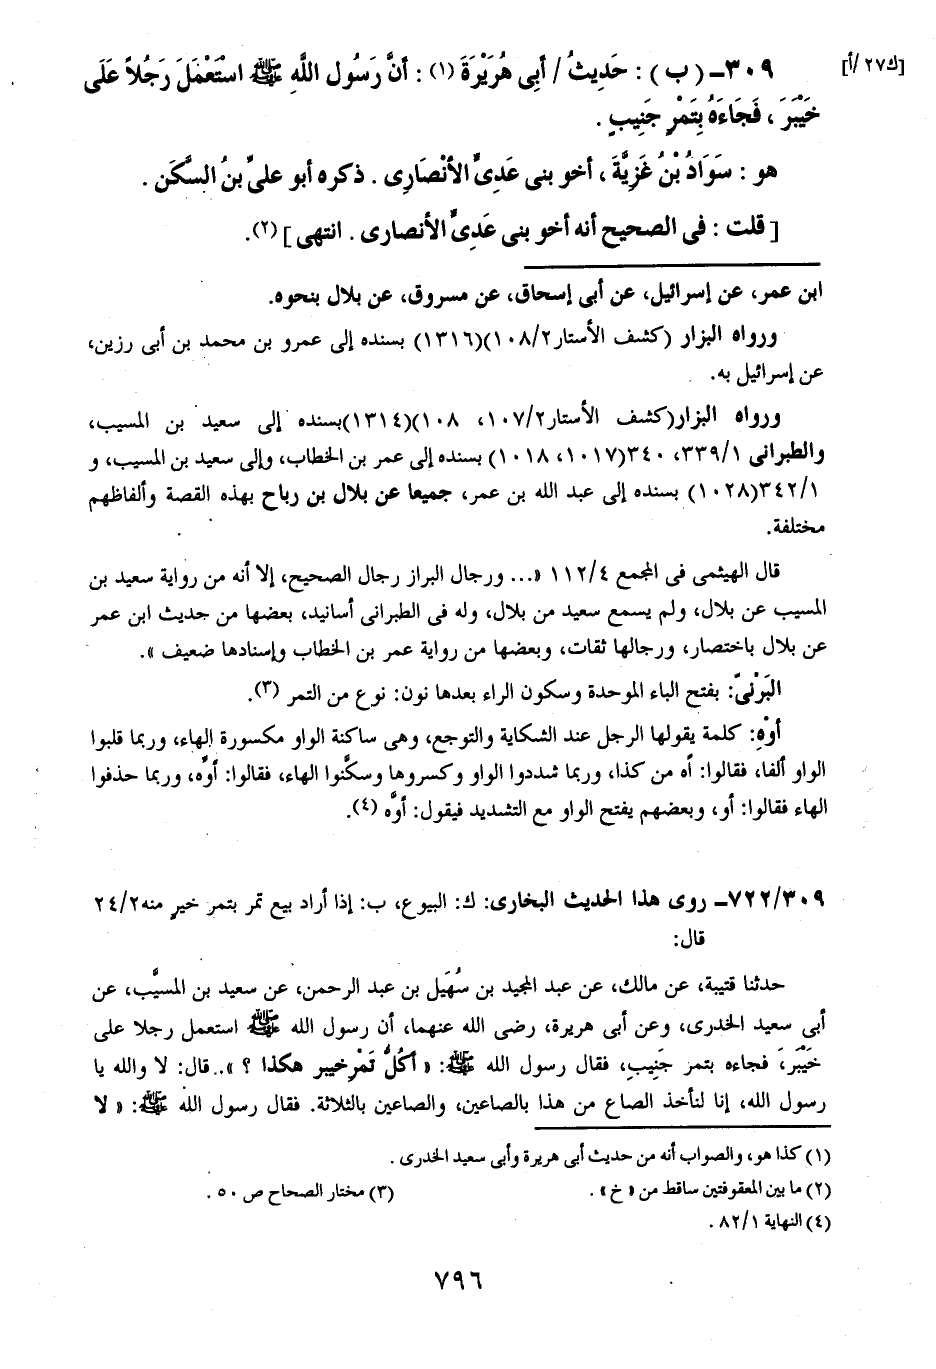 [ك٢٧/أ]
٣٠٩ـ (ب) : حَدِيثُ / أَبِى هُرَيْرَةَ (١) : أَنَّ رَسُول اللَّهِ ﷺ اسْتَعْمَلَ رَجُلاً عَلَى
خَيْبَرَ ، فَجَاءَهُ بِتَمْرٍ جَنِيبٍ .
هو : سَوَادُ بْنُ غَزِيَّةَ ، أخو بنى عَدِىٍّ الأنْصَارِى . ذكره أبو علىِّ بنُ السَّكَن .
[ قلت : فى الصحيح أنه أخو بنى عَدِىٍّ الأنصارى . انتهى ] (٢).
ابن عمر، عن إسرائيل، عن أبى إسحاق، عن مسروق، عن بلال بنحوه.
ورواه البزار (كشف الأستار١٠٨/٢)(١٣١٦) بسنده إلى عمرو بن محمد بن أبى رزين،
عن إسرائيل به.
ورواه البزار(كشف الأستار١٠٧/٢، ١٠٨)(١٣١٤)بسنده إلى سعيد بن المسيب،
والطبرانى ٣٣٩/١، ٣٤٠(١٠١٧، ١٠١٨) بسنده إلى عمر بن الخطاب، وإلى سعيد بن المسيب، و
٣٤٢/١(١٠٢٨) بسنده إلى عبد الله بن عمر، جميعا عن بلال بن رباح بهذه القصة وألفاظهم
مختلفة.
قال الهيثمى فى المجمع ١١٢/٤ «... ورجال البراز رجال الصحيح، إلا أنه من رواية سعيد بن
المسيب عن بلال، ولم يسمع سعيد من بلال، وله فى الطبرانى أسانيد، بعضها من حديث ابن عمر
عن بلال باختصار، ورجالها ثقات، وبعضها من رواية عمر بن الخطاب وإسنادها ضعيف ».
البَرْنىّ: بفتح الباء الموحدة وسكون الراء بعدها نون: نوع من التمر (٣).
أوْهِ: كلمة يقولها الرجل عند الشكاية والتوجع، وهى ساكنة الواو مكسورة الهاء، وربما قلبوا
الواو ألفا، فقالوا: آه من كذا، وربما شددوا الواو وكسروها وسكَّنوا الهاء، فقالوا: أوِّه، وربما حذفوا
الهاء فقالوا: أو، وبعضهم يفتح الواو مع التشديد فيقول: أوَّه (٤).
٧٢٢/٣٠٩ـ روى هذا الحديث البخارى: ك: البيوع، ب: إذا أراد بيع تمر بتمر خيرٍ منه٢٤/٢
قال:
حدثنا قتيبة، عن مالك، عن عبد المجيد بن سُهَيل بن عبد الرحمن، عن سعيد بن المسيَّب، عن
أبى سعيد الخدرى، وعن أبى هريرة، رضى الله عنهما، أن رسول الله ﷺ استعمل رجلا على
خَيْبَرَ، فجاءه بتمر جَنِيبٍ، فقال رسول الله ﷺ: «أكُلُّ تَمْرِ خيبر هكذا ؟ »..قال: لا والله يا
رسول الله، إنا لنأخذ الصاع من هذا بالصاعين، والصاعين بالثلاثة. فقال رسول الله ﷺ: « لا
(١) كذا هو، والصواب أنه من حديث أبى هريرة وأبى سعيد الخدرى .
(٢) ما بين المعقوفتين ساقط من « خ» . (٣) مختار الصحاح ص ٥٠ .
(٤) النهاية ٨٢/١ .
٧٩٦